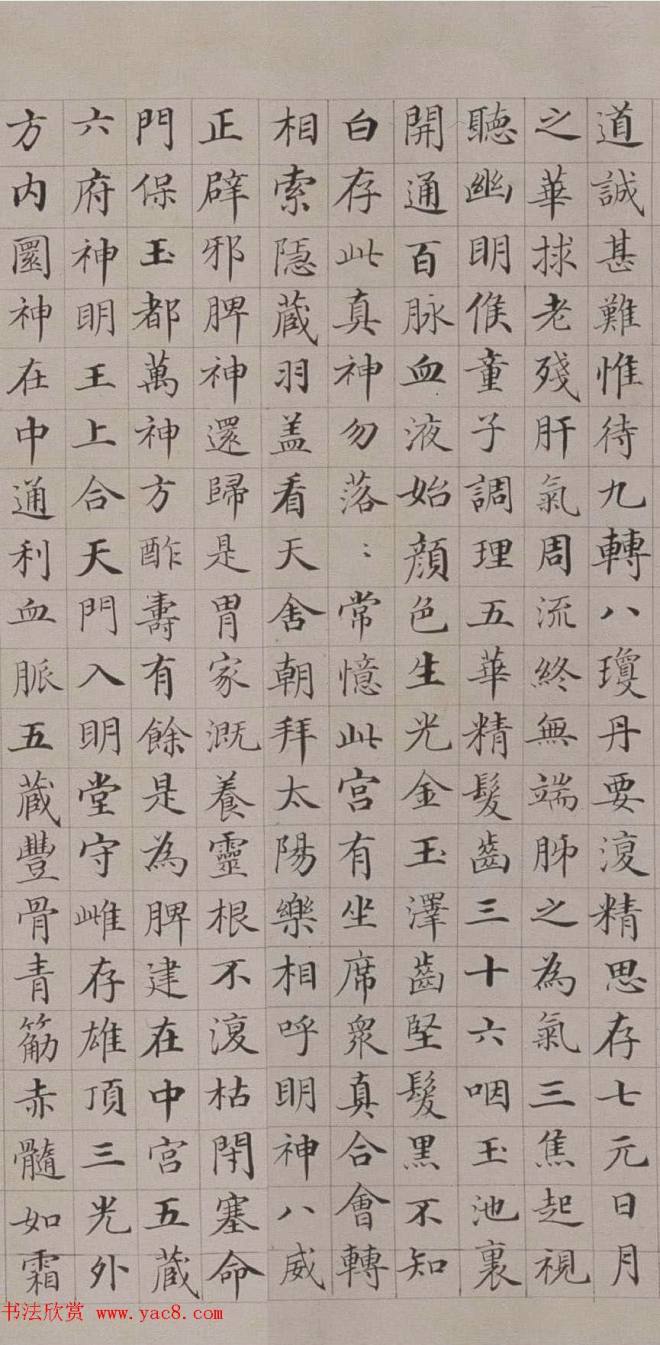 道誠甚難惟待九轉八瓊丹要復精思存七元日月
之華捄老殘肝氣周流終無端肺之為氣三焦起視
聽幽明候童子調理五華精髮齒三十六咽玉池裏
開通百脉血液始顏色生光金玉澤齒堅髮黑不知
白存此真神勿落〻常憶此宮有坐席衆真合會轉
相索隱蔵羽盖看天舍朝拜太陽樂相呼明神八威
正辟邪脾神還歸是胃家溉養靈根不復枯閇塞命
門保玉都萬神方酢壽有餘是為脾建在中宮五蔵
六府神明王上合天門入明堂守雌存雄頂三光外
方内圓神在中通利血脈五蔵豐骨青筋赤髓如霜
书法欣赏 www.yac8.com